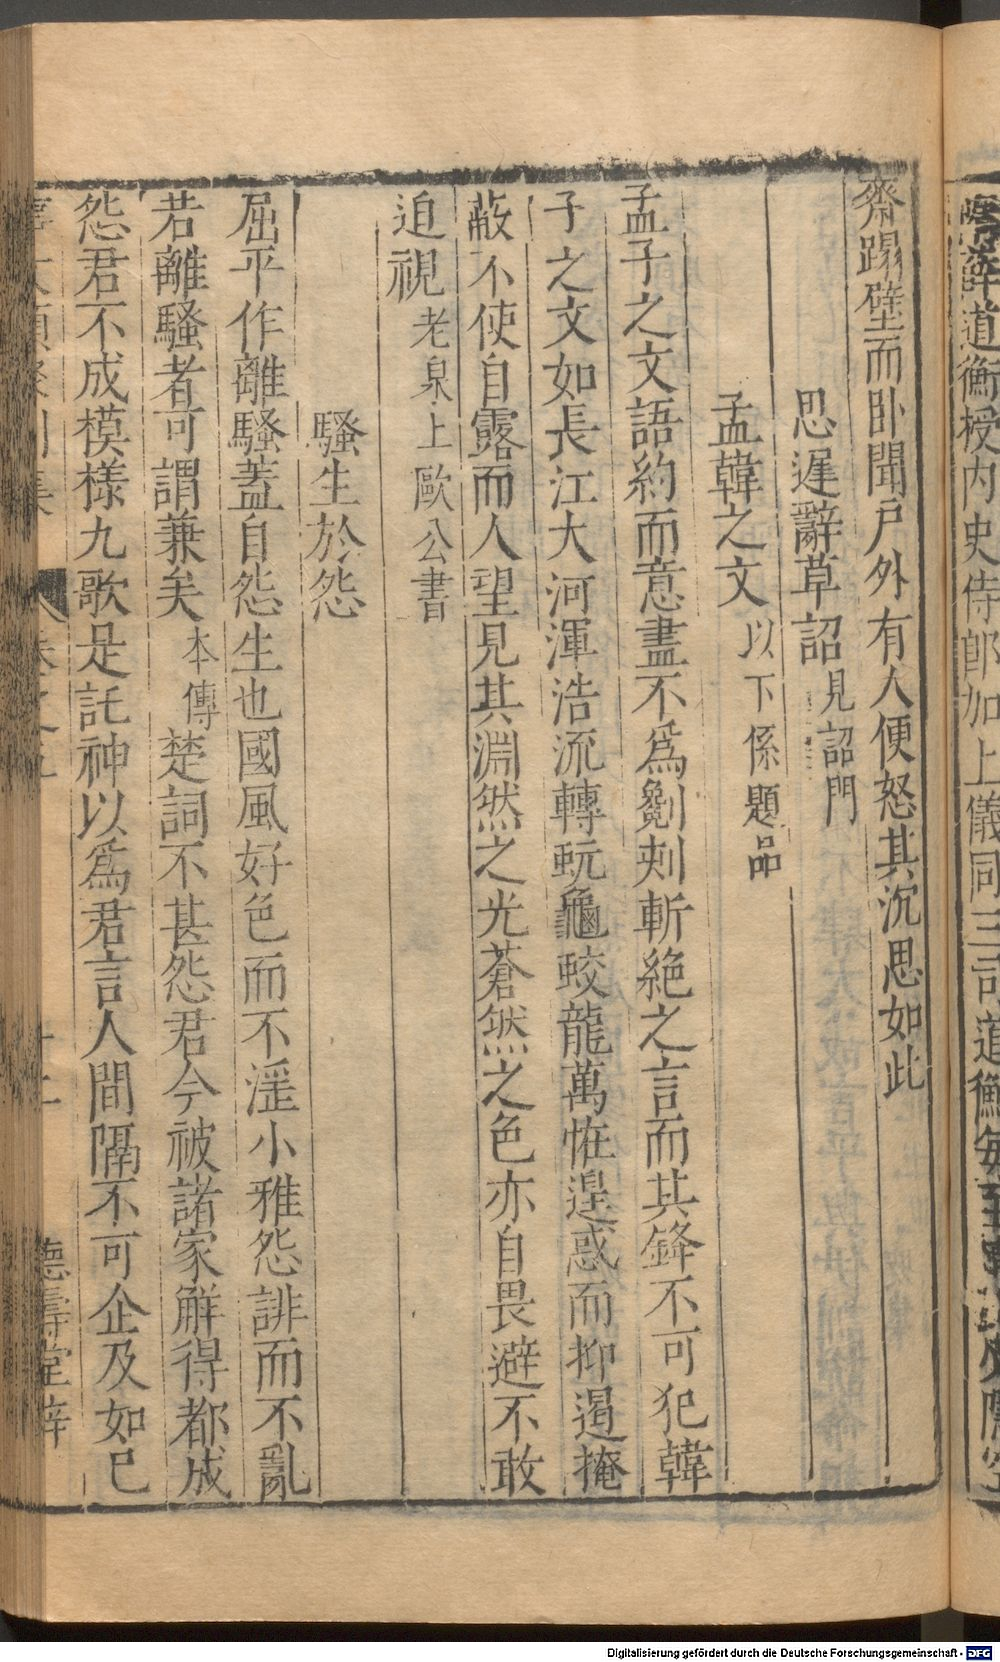 道衡授内史侍郎加上儀同三司道衡每至
齋蹋壁而卧聞戶外有人便怒其沉思如此
思遲辭草詔 見詔門
孟韓之文 以下係題品
孟子之文語約而意盡不爲劖刾斬絶之言而其鋒不可犯韓
子之文如長江大河渾浩流轉䖤龜蛟龍萬恠遑惑而抑遏掩
蔽不使自露而人望見其淵然之光蒼然之色亦自畏避不敢
迫視 老泉上歐公書
騷生於怨
屈平作離騷蓋自怨生也國風好色而不淫小雅怨誹而不亂
若離騷者可謂兼矣 本傳 楚詞不甚怨君今被諸家解得都成
怨君不成模樣九歌是託神以爲君言人間隔不可企及如巳
卷之五
十二
德壽堂梓
Digitalisierung gefördert durch die Deutsche Forschungsgemeinschaft - DFG